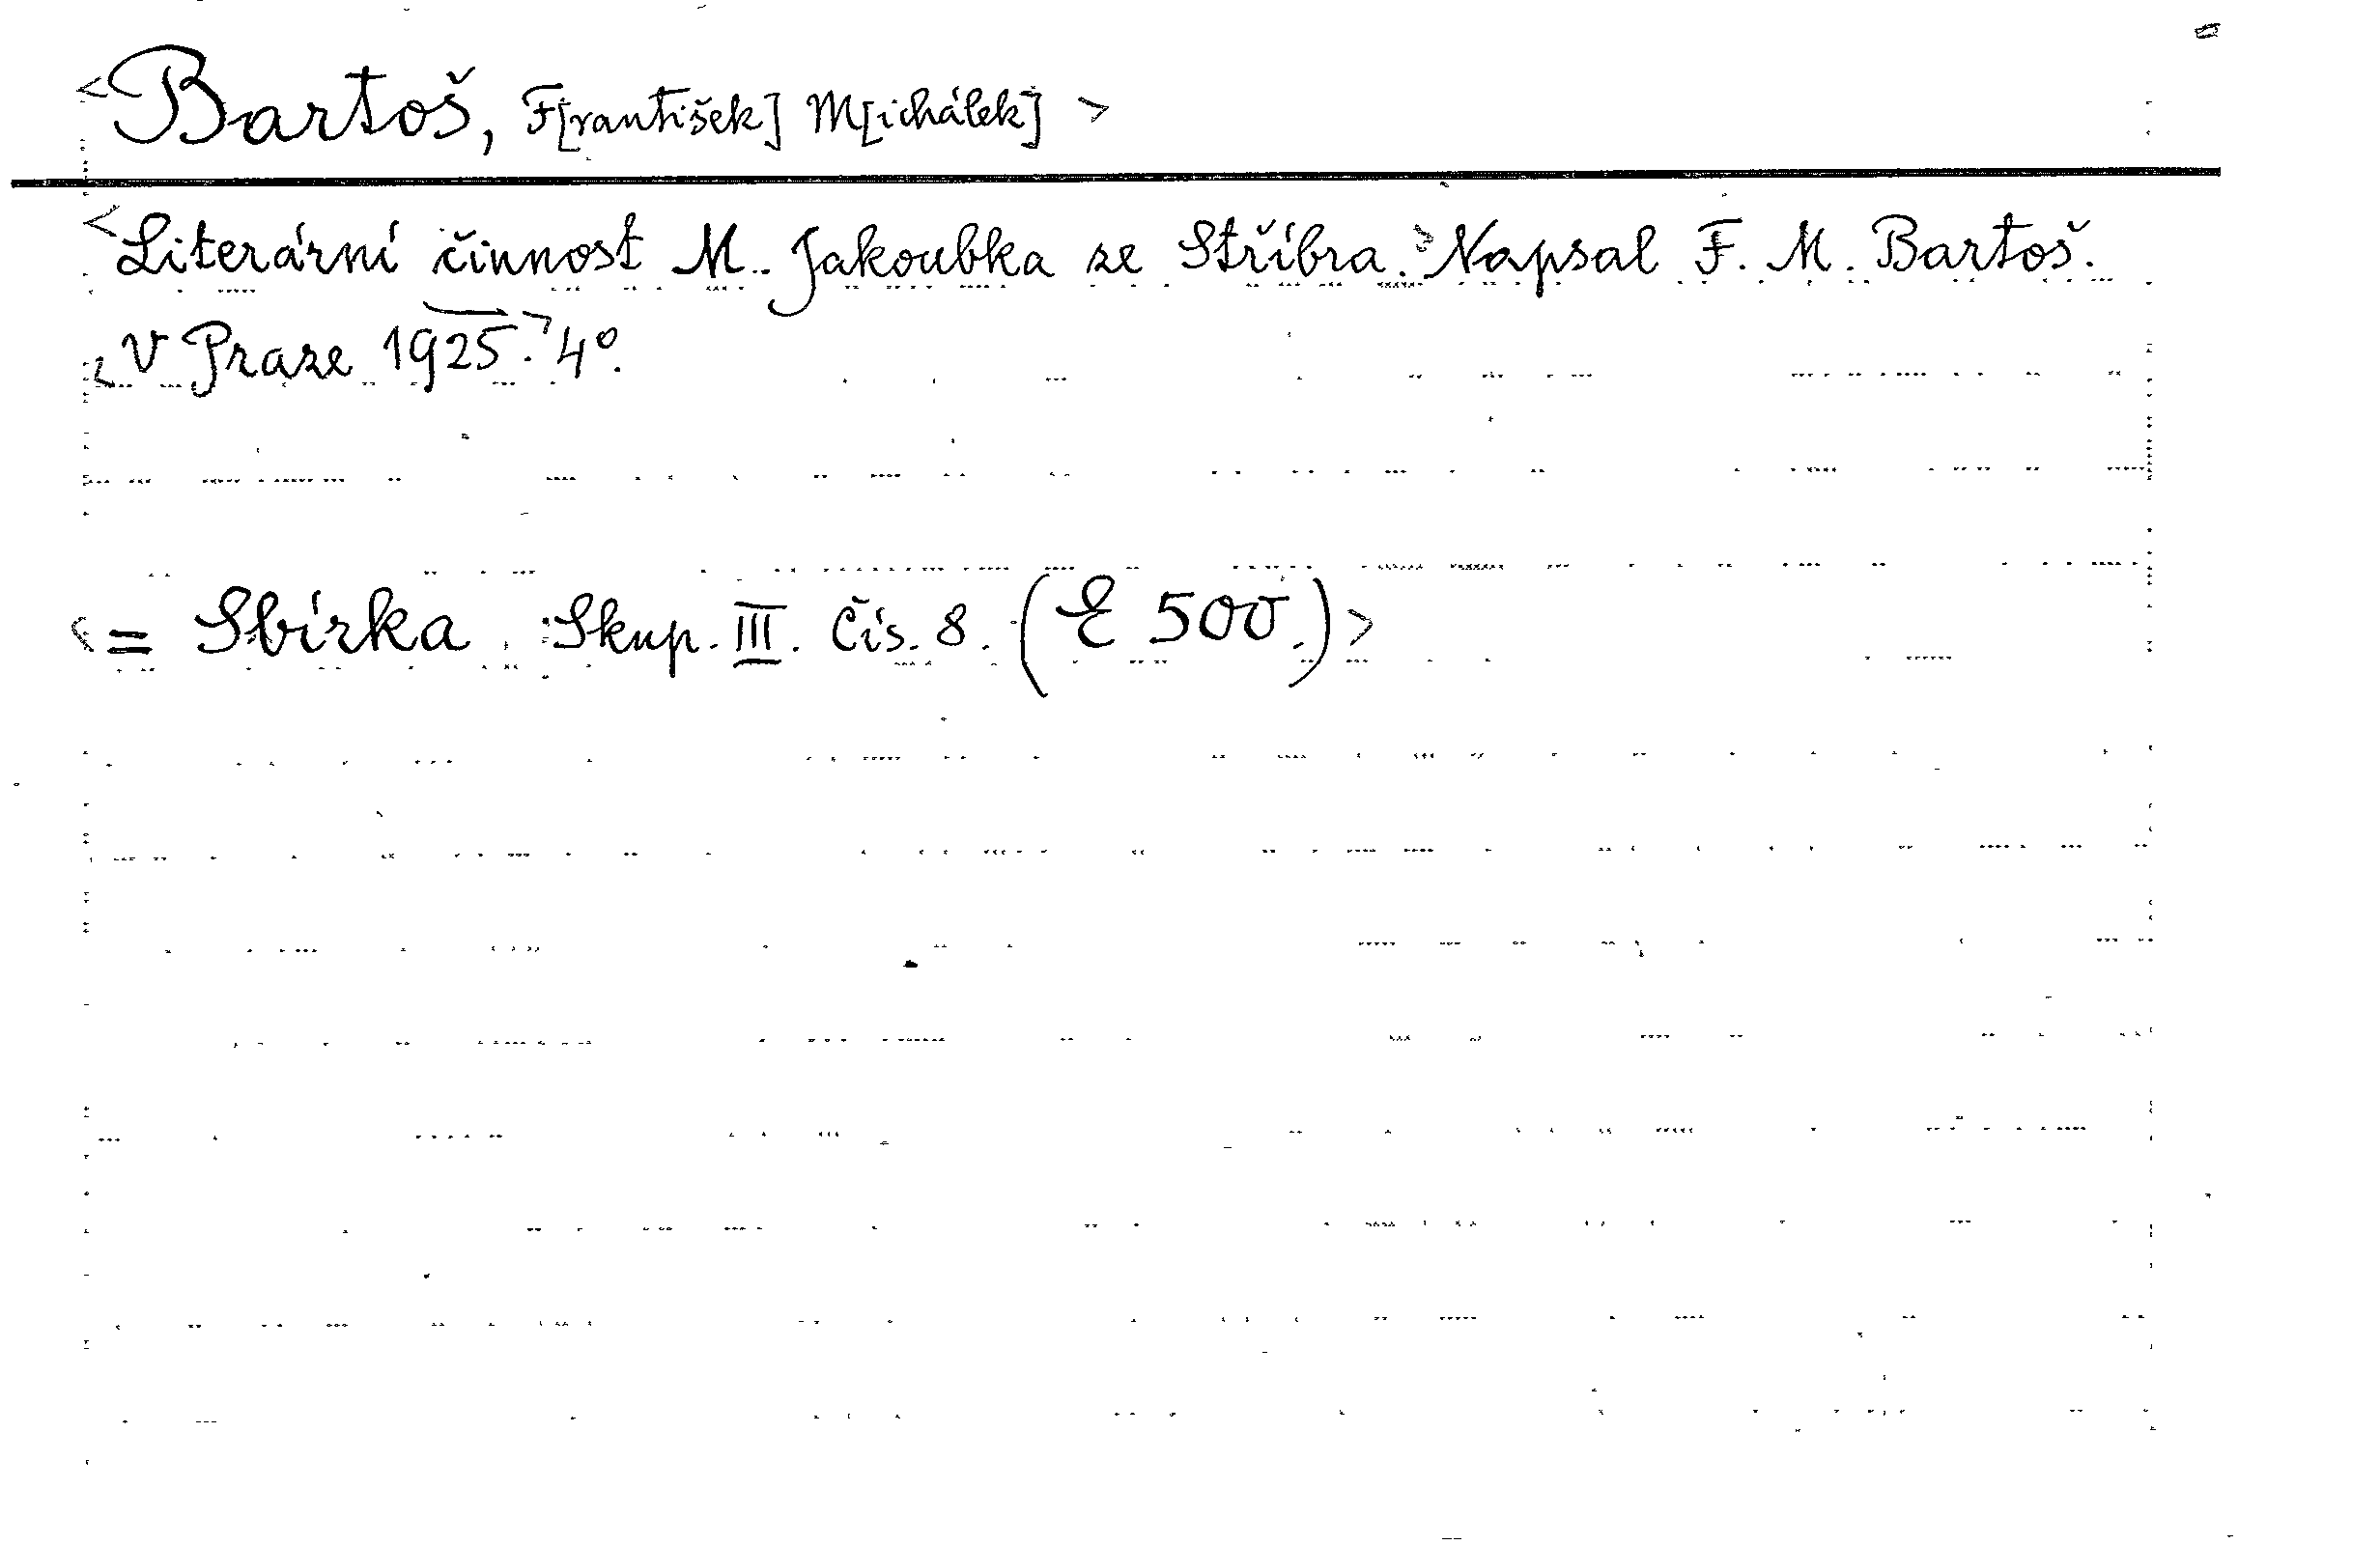 <Bartoš, F[rantišek] M[ichálek]>
<Literární činnost M. Jakoubka ze Stříbra.> Napsal F. M. Bartoš.
<V Praze 1925.> 4°.
<= Sbírka. Skup. III. Čís. 8. (E 500.)>